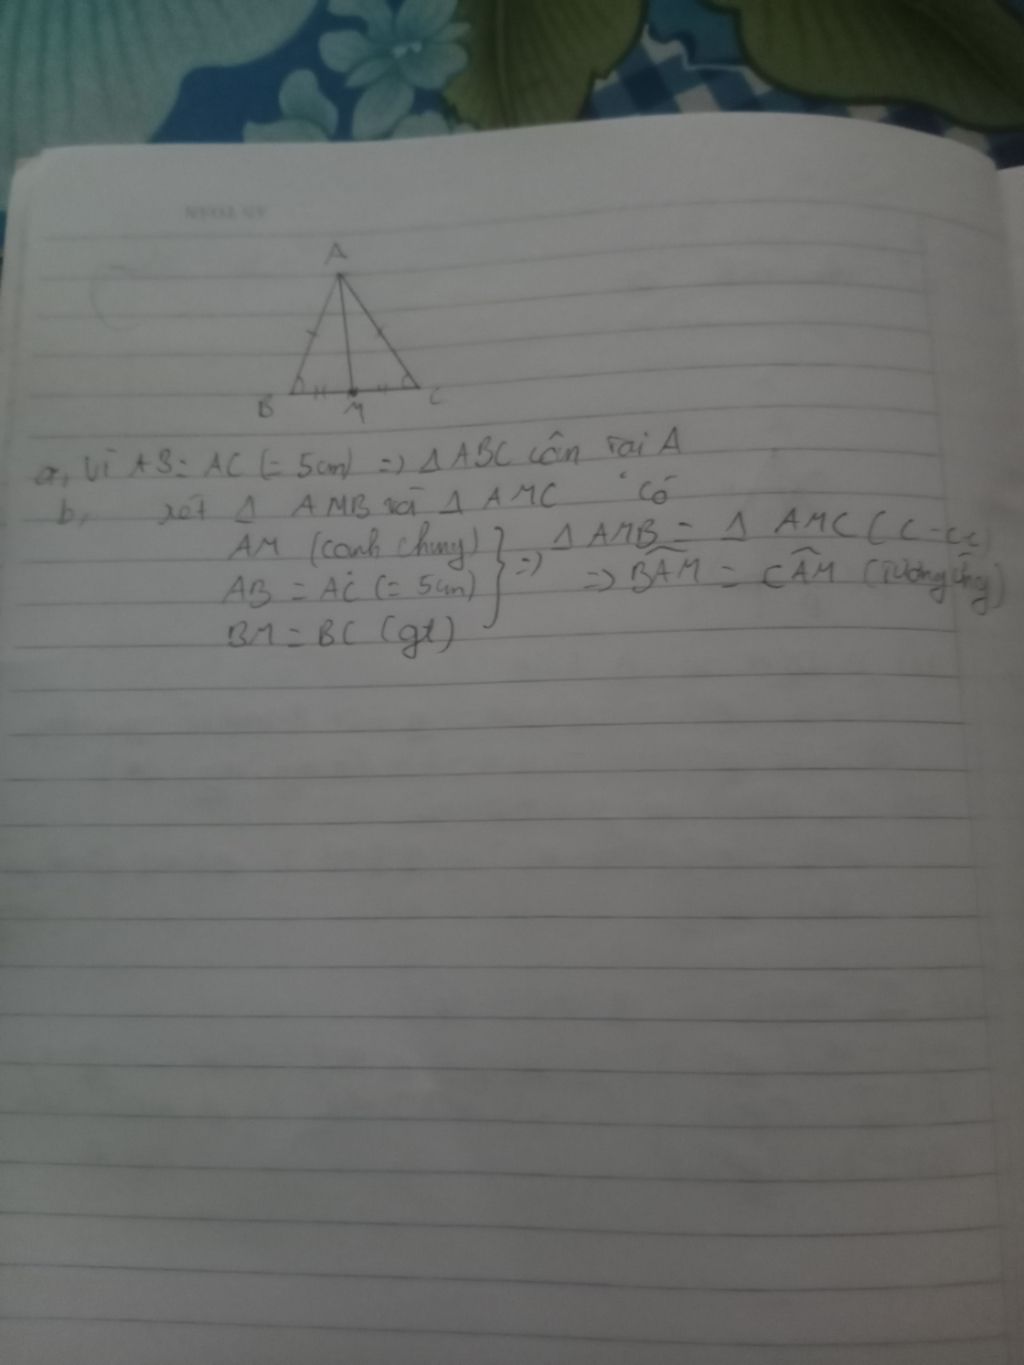 A
B M C
a, Vì AB = AC (= 5cm) => Δ ABC cân tại A
b, xét Δ AMB và Δ AMC có
AM (cạnh chung)
AB = AC (= 5cm)
BM = BC (gt)
} => Δ AMB = Δ AMC (c-cc)
=> BÂM = CÂM (tương ứng)